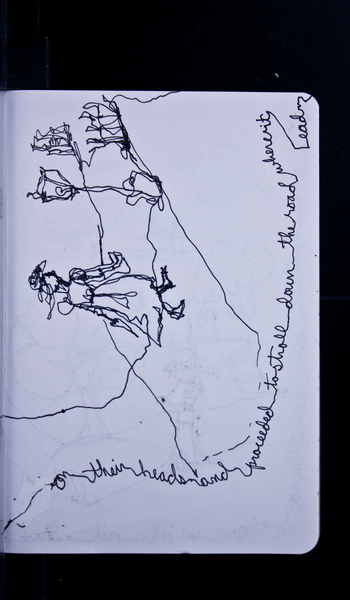 on their heads and
proceeded to stroll down the road where it
Leads